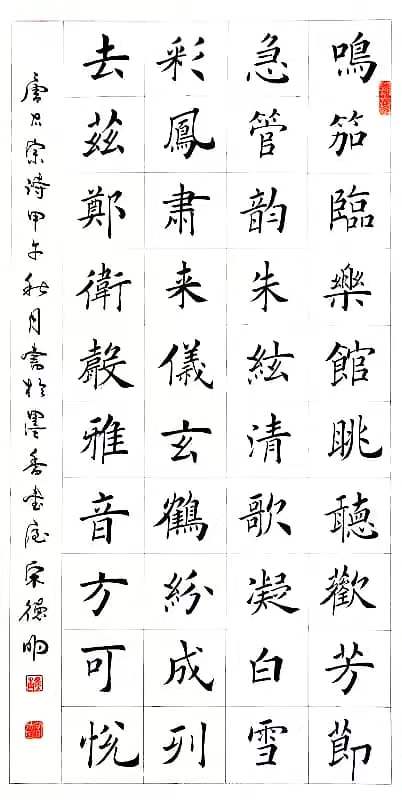 鳴笳臨樂館眺聽歡芳節
急管韵朱絃清歌凝白雪
彩鳳肅来儀玄鶴紛成列
去茲鄭衛聲雅音方可悅
唐太宗詩甲午秋月書於墨香書屋宋德明